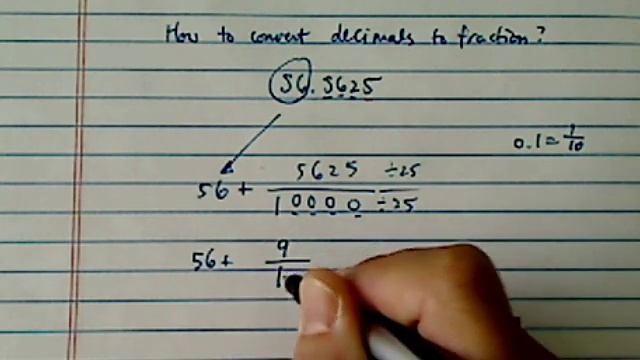 How to convert decimals to fraction?
56.5625
0.1 = 1/10
56 + 5625 ÷25 / 10000 ÷25
56 + 9 / 1